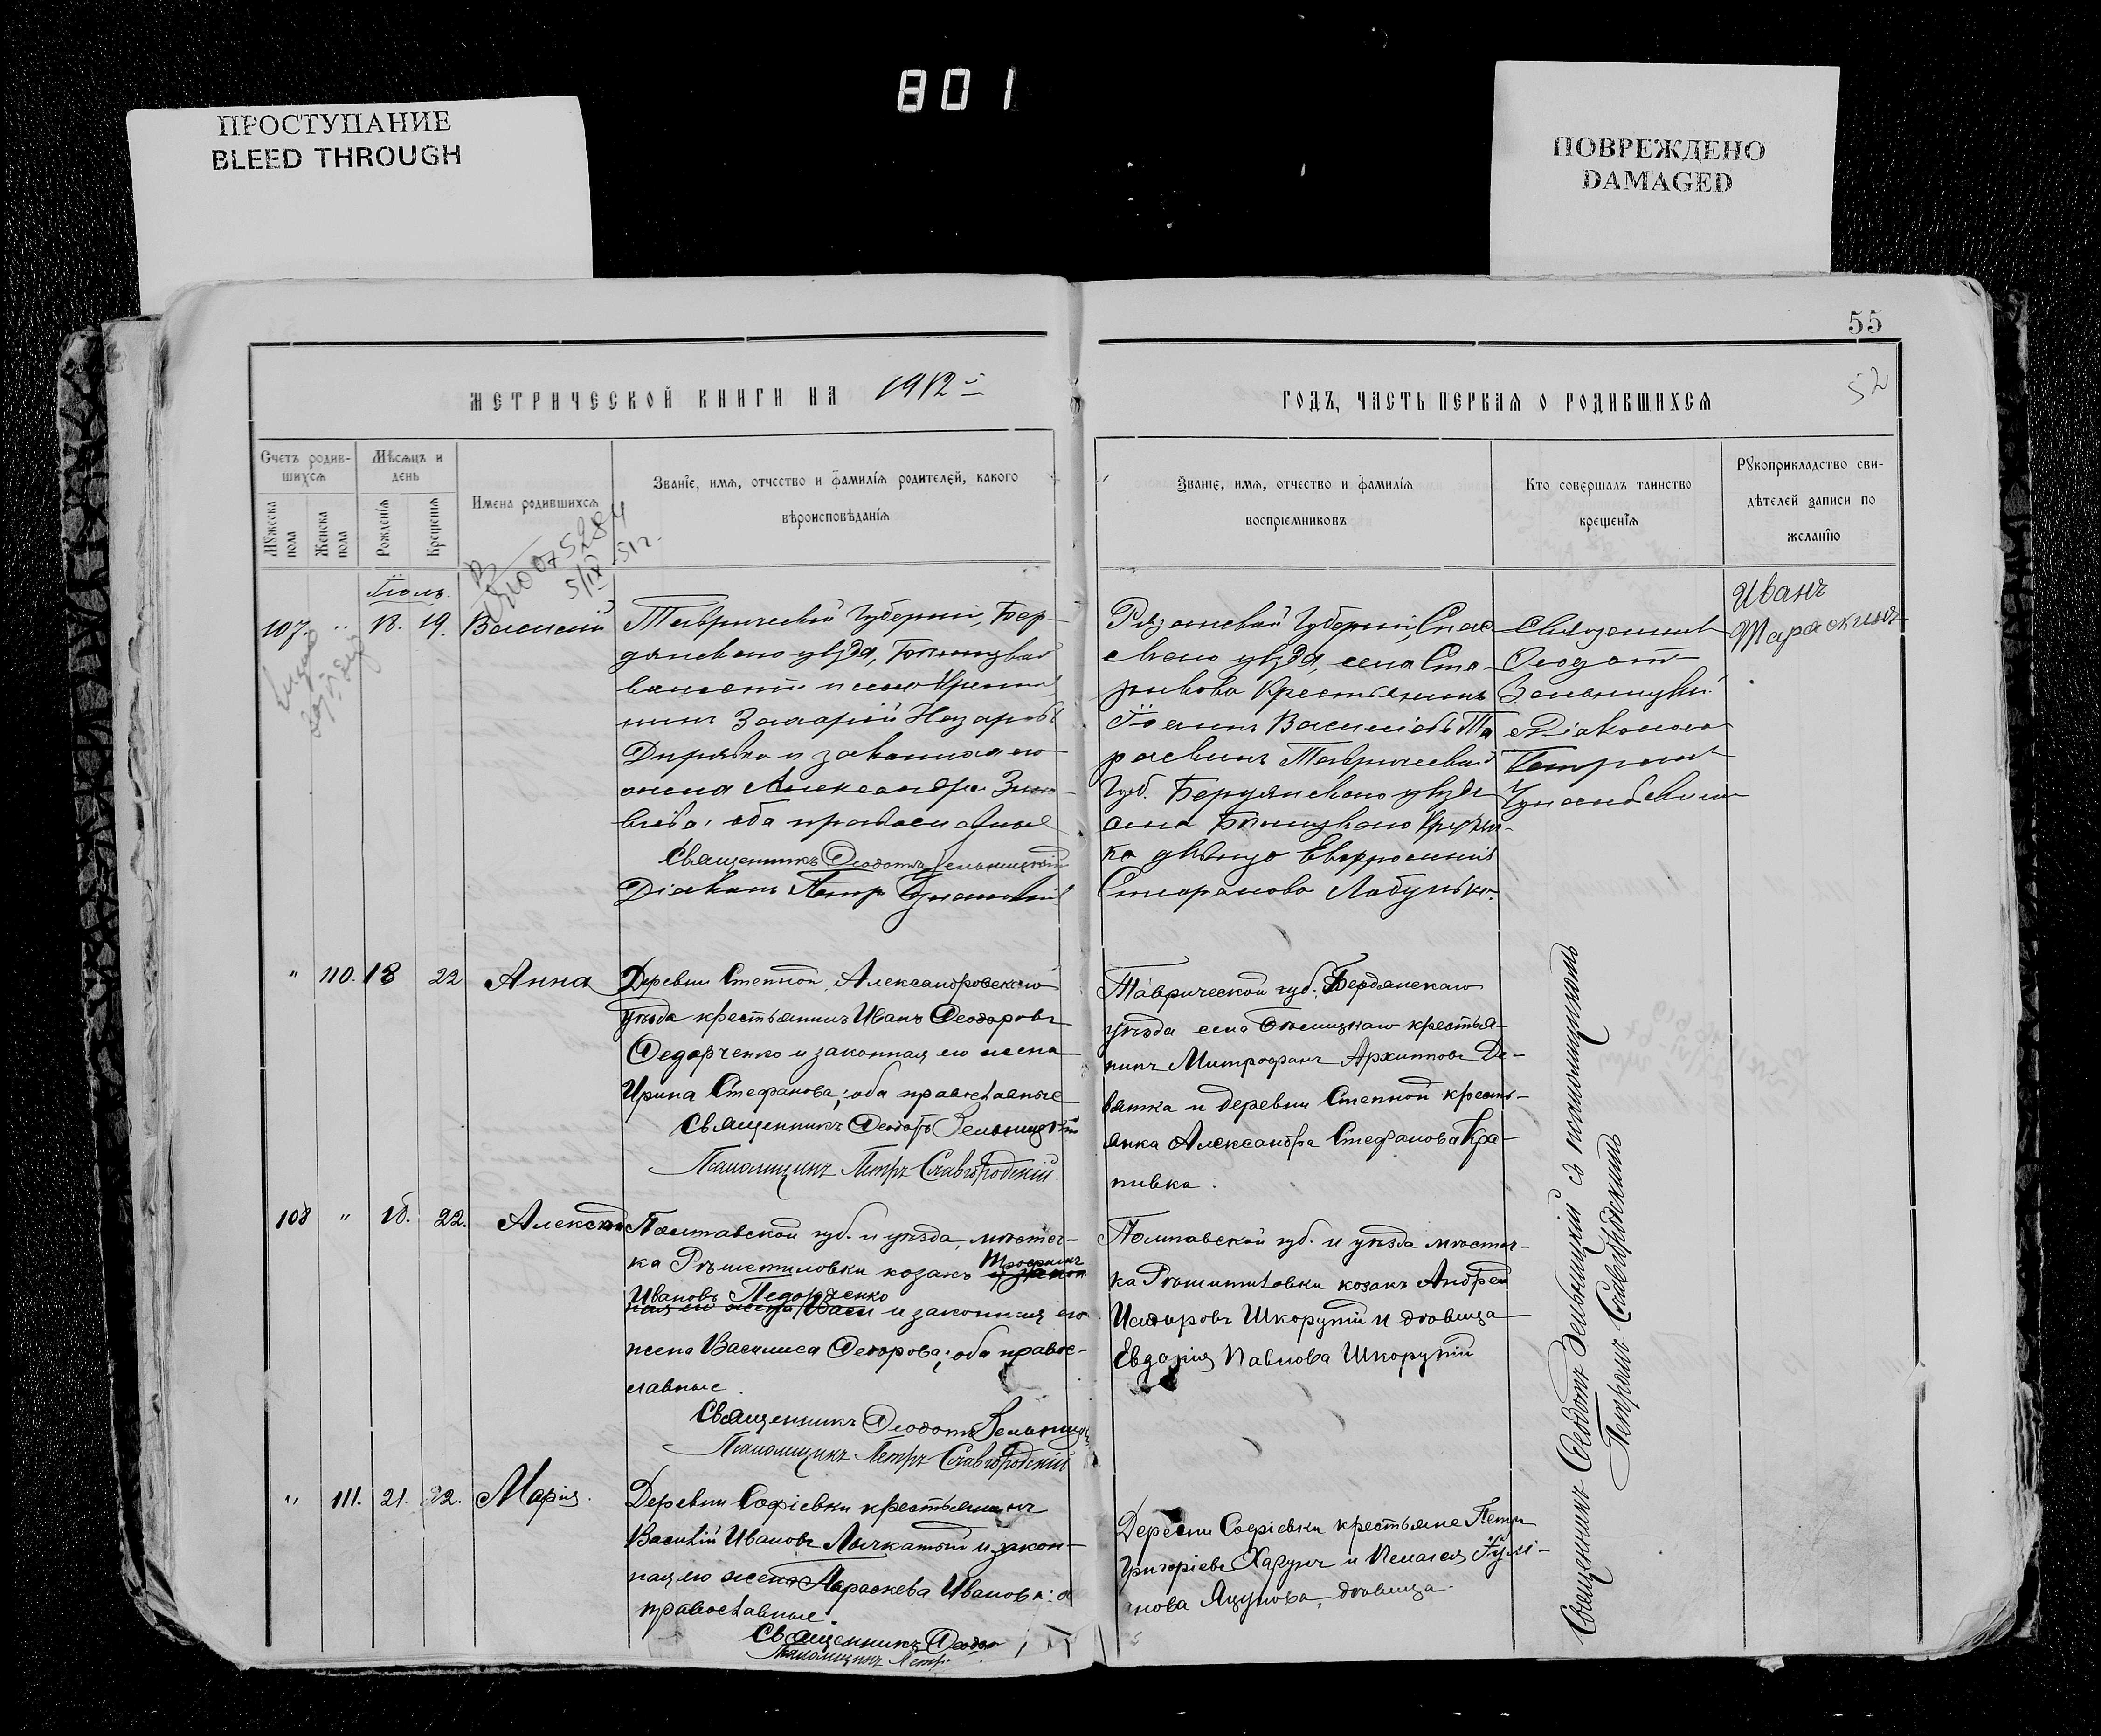 801
ПРОСТУПАНИЕ
BLEED THROUGH
ПОВРЕЖДЕНО
DAMAGED
55
52
МЕТРИЧЕСКОЙ КНИГИ НА 1912 й
ГОДЪ, ЧАСТЬ ПЕРВАЯ О РОДИВШИХСЯ
Счетъ родив-
шихся
Мужеска пола
Женска пола
Мѣсяцъ и
день
Рожденія
Крещенія
Имена родившихся
Званіе, имя, отчество и фамилія родителей, какого
вѣроисповѣданія
Званіе, имя, отчество и фамилія
воспріемниковъ
Кто совершалъ таинство
крещенія
Рукоприкладство сви-
дѣтелей записи по
желанію
Іюль.
107. " 18. 19. Василій
Таврической Губерніи, Бер-
дянскаго уѣзда,
волости и села
Захарій Назаровъ
и законная его
жена Александра
оба православные
Священникъ Ѳеодотъ Зельницкій
Діаконъ Петръ
Рязанской Губерніи, Спас
скаго уѣзда, села Ста-
рикова Крестьянинъ
Іоаннъ Василіевъ Та
раскинъ Таврической
Губ. Бердянскаго уѣзда
села
ка дѣвица
Священникъ
Ѳеодотъ
Зельницкій
Діакономъ
Петромъ
Иванъ
Тараскинъ
" 110. 18 22 Анна
Деревни Степной, Александровскаго
уѣзда крестьянинъ Иванъ Ѳеодоровъ
Ѳедорченко и законная его жена
Ирина Стефанова; оба православные
Священникъ Ѳеодотъ Зельницкій
Псаломщикъ Петръ Славгородскій.
Таврической губ. Бердянскаго
уѣзда села Бѣлицкаго крестья-
нинъ Митрофанъ Архиповъ Де-
вятка и деревни Степной кресть-
янка Александра Стефанова Кра-
пивка.
108 " 18. 22. Александръ
Полтавской губ. и уѣзда, мѣстеч-
ка Рѣшетиловки козакъ Трофимъ
Ивановъ Педорченко
и законная его
жена Василиса Ѳедорова; оба правос-
славные.
Священникъ Ѳеодотъ Зельницкій
Псаломщикъ Петръ Славгородскій
Полтавской губ. и уѣзда мѣстеч-
ка Рѣшитиловки козакъ Андрей
Исидоровъ Шкорупій и дѣвица
Евдокія Павлова Шкорупій
" 111. 21. 22. Марія.
Деревни Софіевки крестьянинъ
Василій Ивановъ Лычкатый и закон-
ная его жена Параскева Иванова: о
православные.
Священникъ Ѳеодот
Псаломщикъ Петръ
Деревни Софіевки крестьяне Петръ
Григоріевъ Харунъ и Пелагея Іулі-
анова Яцунова, дѣвица.
Священникъ Ѳеодотъ Зельницкій съ псаломщикомъ
Петромъ Славгородскимъ